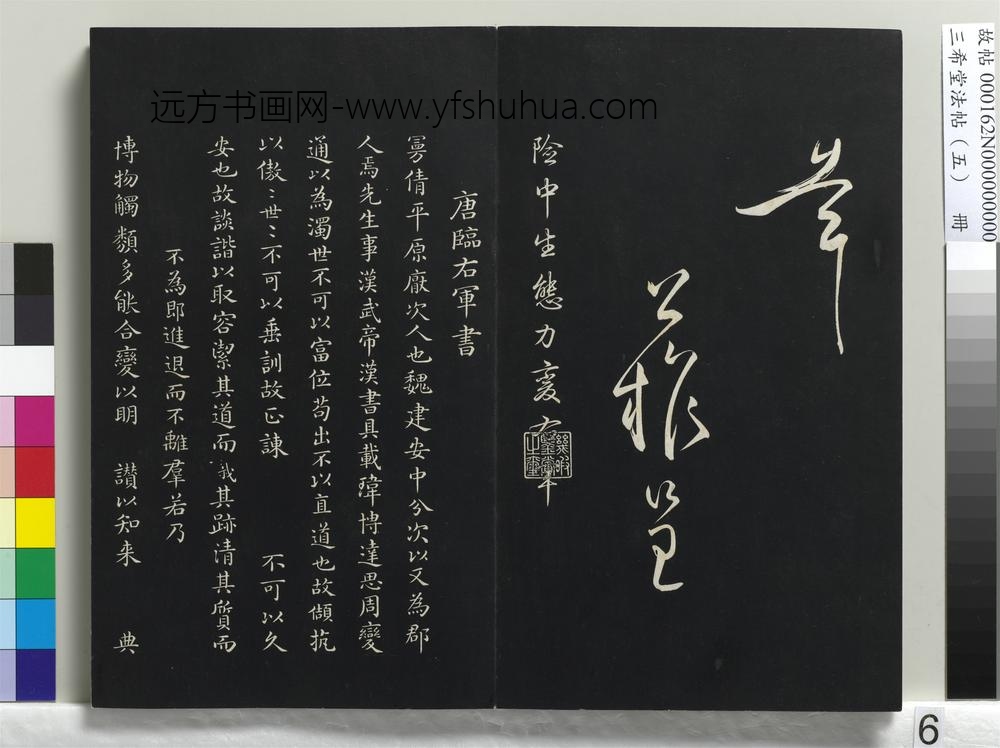 远方书画网-www.yfshuhua.com
故帖 000162N000000000
三希堂法帖（五） 冊
險中生態力變
唐臨右軍書
曼倩平原厭次人也魏建安中分次以又為郡
人焉先生事漢武帝漢書具載瑋博達思周變
通以為濁世不可以富位苟出不以直道也故傾抗
以傲〻世〻不可以垂訓故正諫 不可以久
安也故談諧以取容潔其道而 其跡清其質而
不為即進退而不離羣若乃
博物觸類多能合變以明 讃以知来 典
6